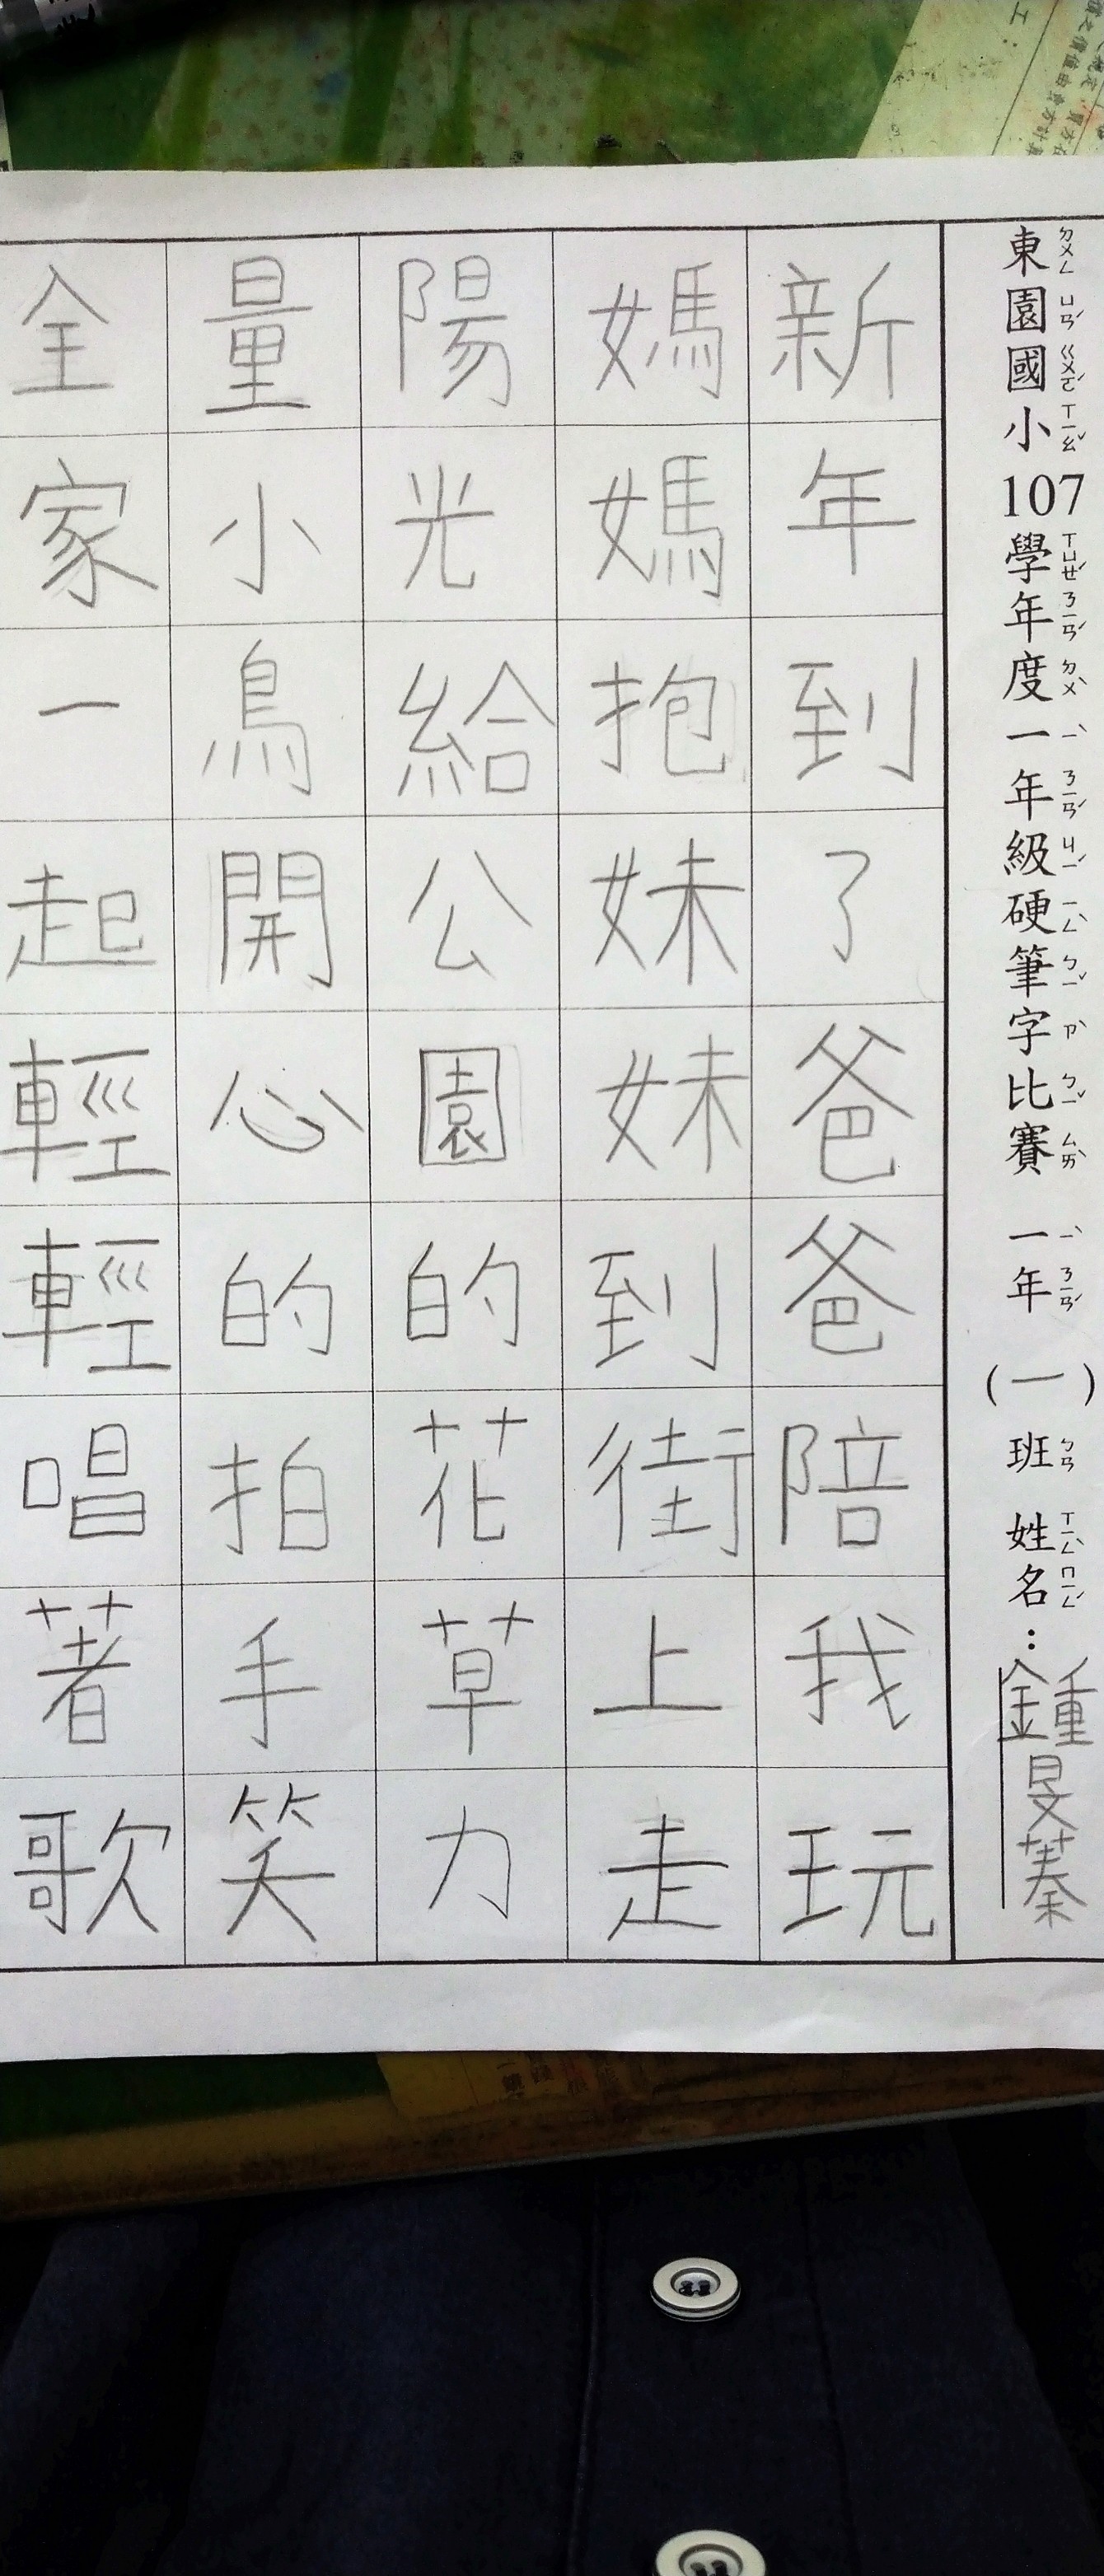 東園國小107學年度一年級硬筆字比賽 一年(一)班 姓名：鍾旻蓁
新年到了爸爸陪我玩
媽媽抱妹妹到街上走
陽光給公園的花草力
量小鳥開心的拍手笑
全家一起輕輕唱著歌